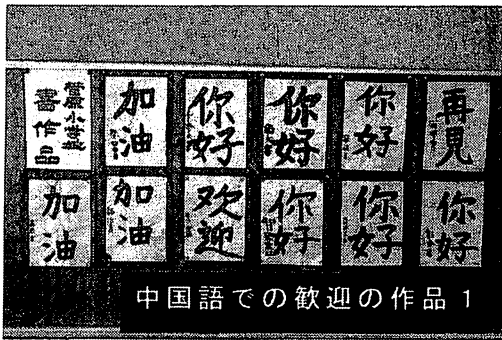 書作品
加油
你好
你好
你好
再見
加油
加油
欢迎
你好
你好
你好
中国語での歓迎の作品1